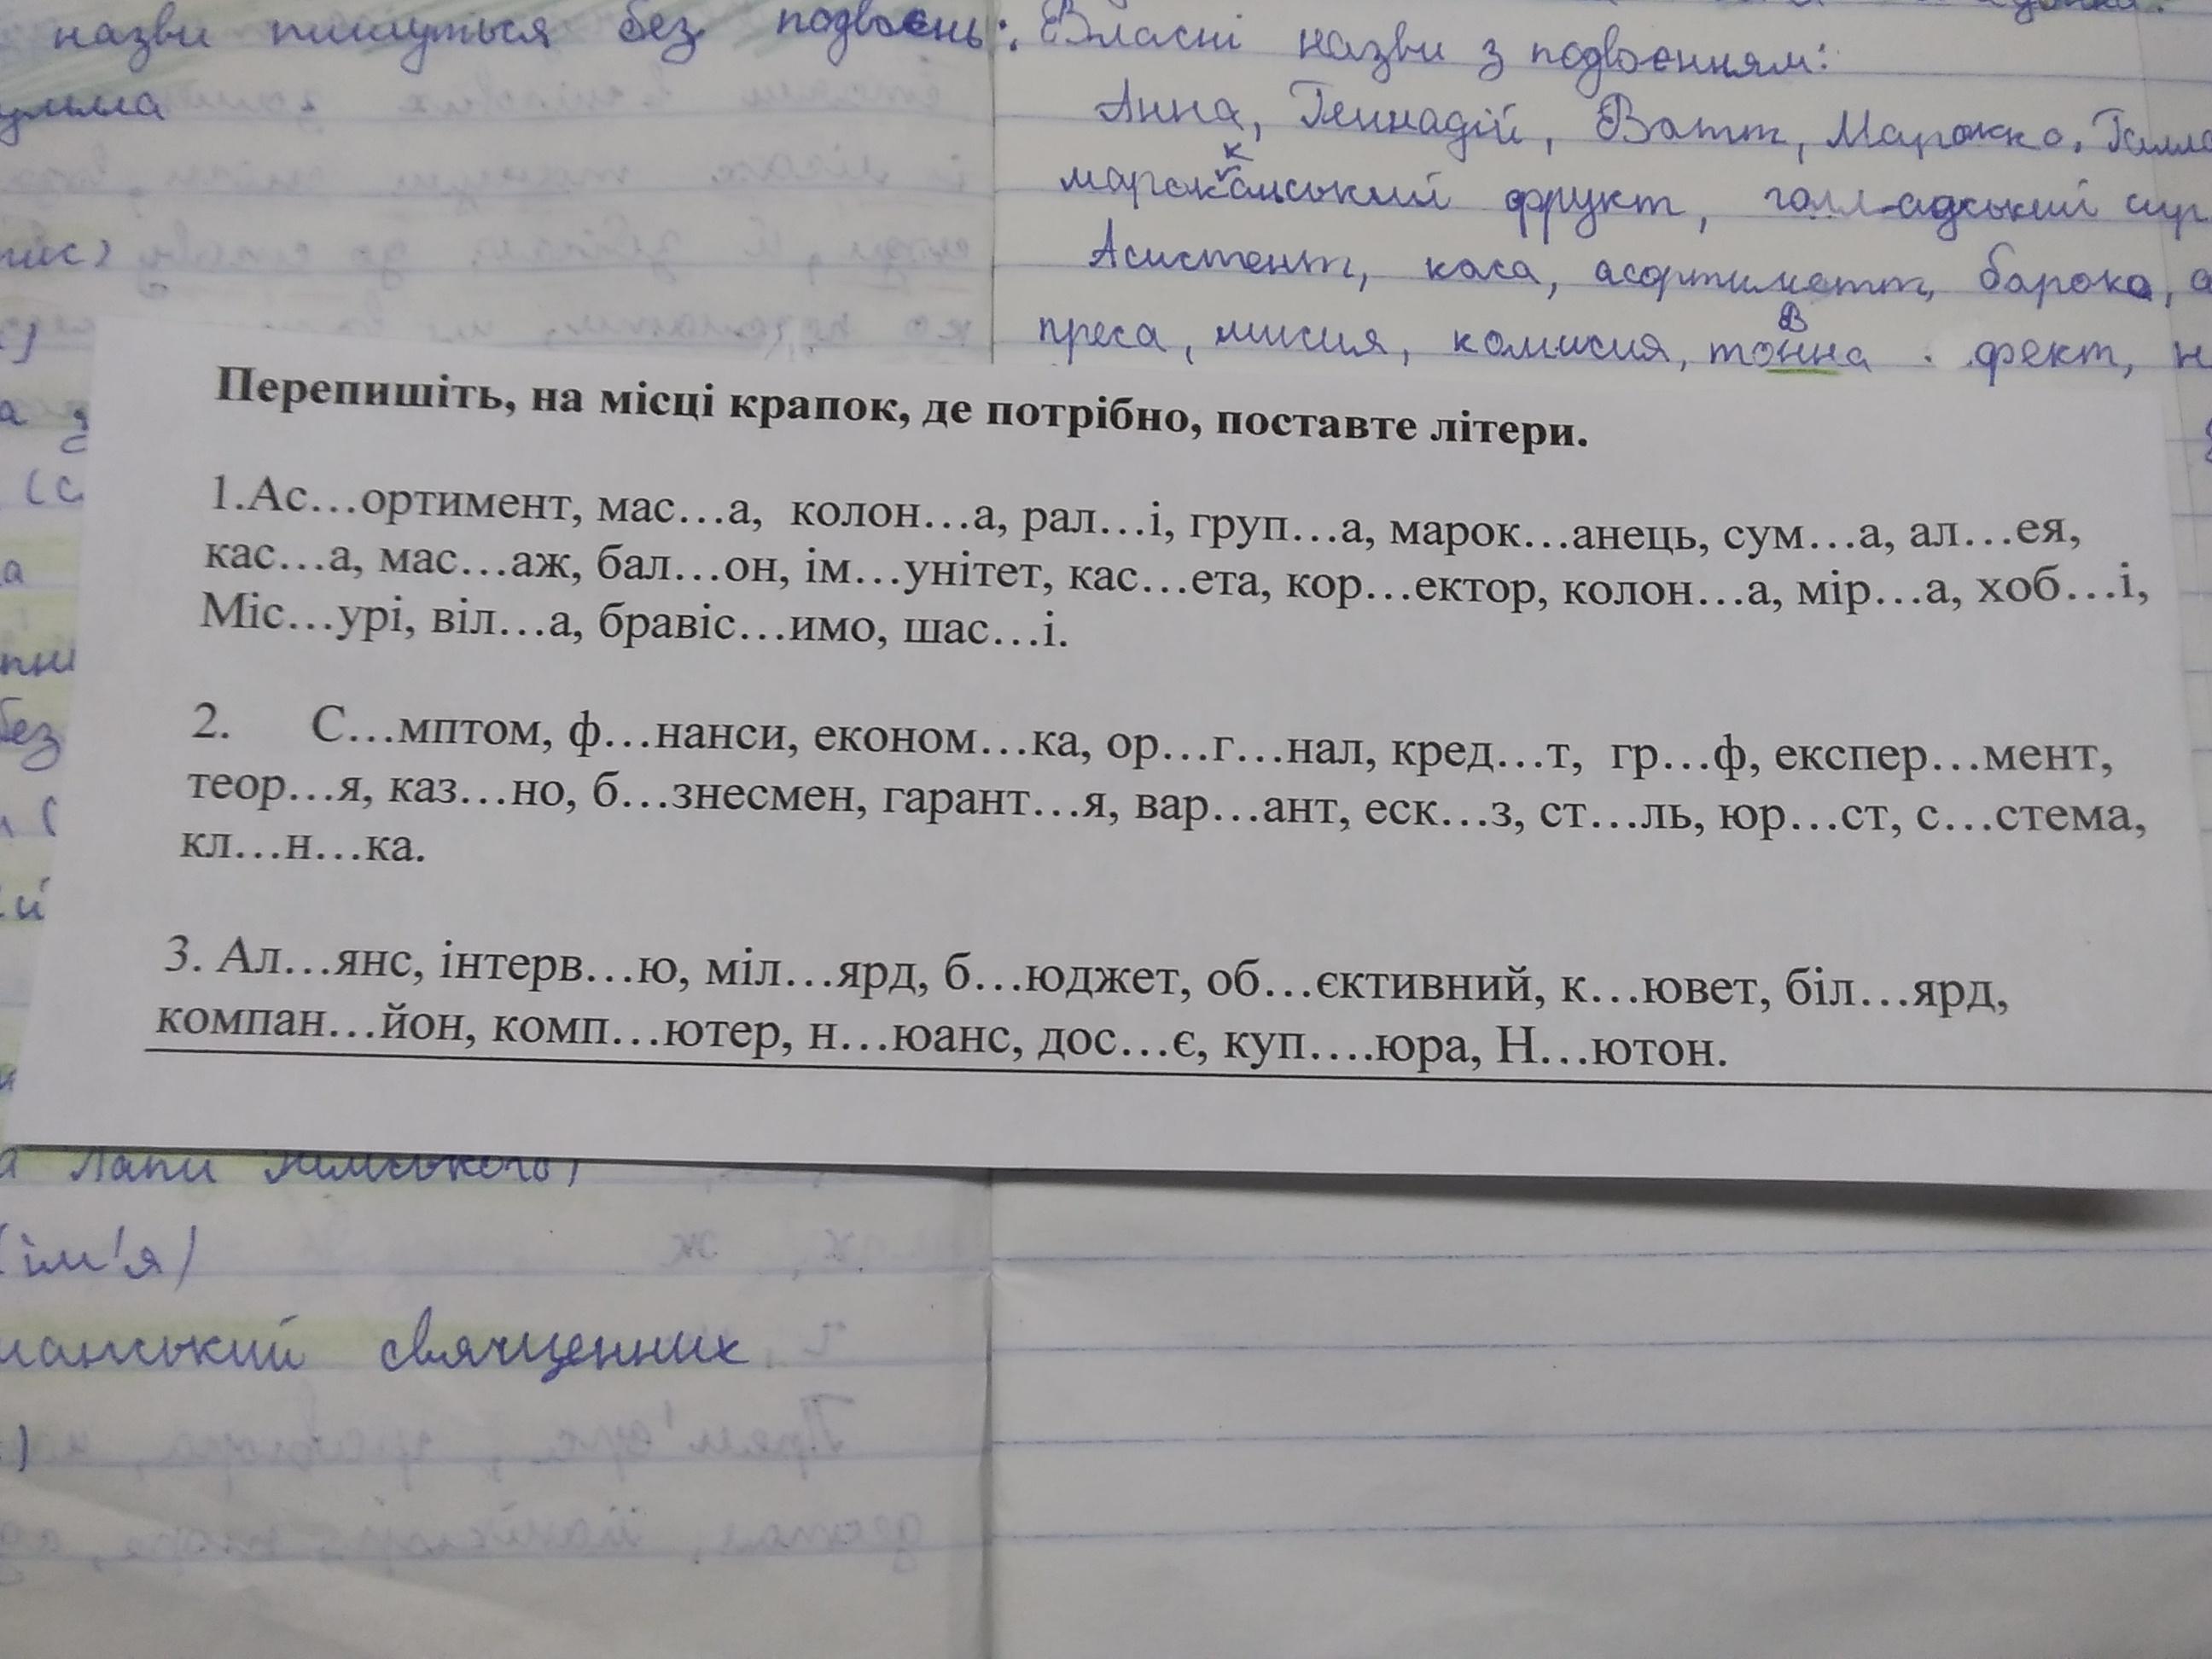 назви пишуться без подвоєнь:
Власні назви з подвоєнням:
Анна, Геннадій, Ватт, Марокко,
марокканський фрукт, голл-адський сир
Асистент, каса, асортимент, бароко,
преса, місія, комісія, тонна фект,
Перепишіть, на місці крапок, де потрібно, поставте літери.
1.Ас…ортимент, мас…а, колон…а, рал…і, груп…а, марок…анець, сум…а, ал…ея,
кас…а, мас…аж, бал…он, ім…унітет, кас…ета, кор…ектор, колон…а, мір…а, хоб…і,
Міс…урі, віл…а, бравіс…имо, шас…і.
2. С…мптом, ф…нанси, економ…ка, ор…г…нал, кред…т, гр…ф, експер…мент,
теор…я, каз…но, б…знесмен, гарант…я, вар…ант, еск…з, ст…ль, юр…ст, с…стема,
кл…н…ка.
3. Ал…янс, інтерв…ю, міл…ярд, б…юджет, об…єктивний, к…ювет, біл…ярд,
компан…йон, комп…ютер, н…юанс, дос…є, куп….юра, Н…ютон.
Папи Римського)
(ім'я)
священник